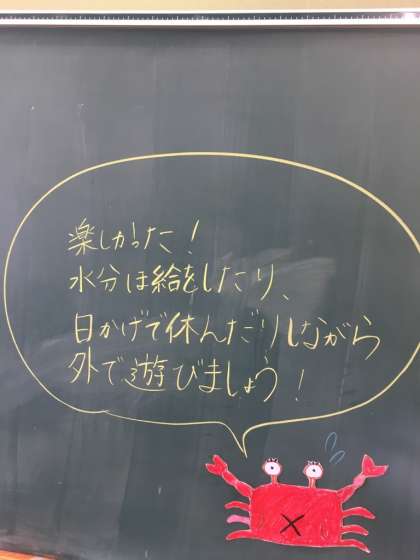 楽しかった！
水分ほ給をしたり、
日かげで休んだりしながら
外で遊びましょう！